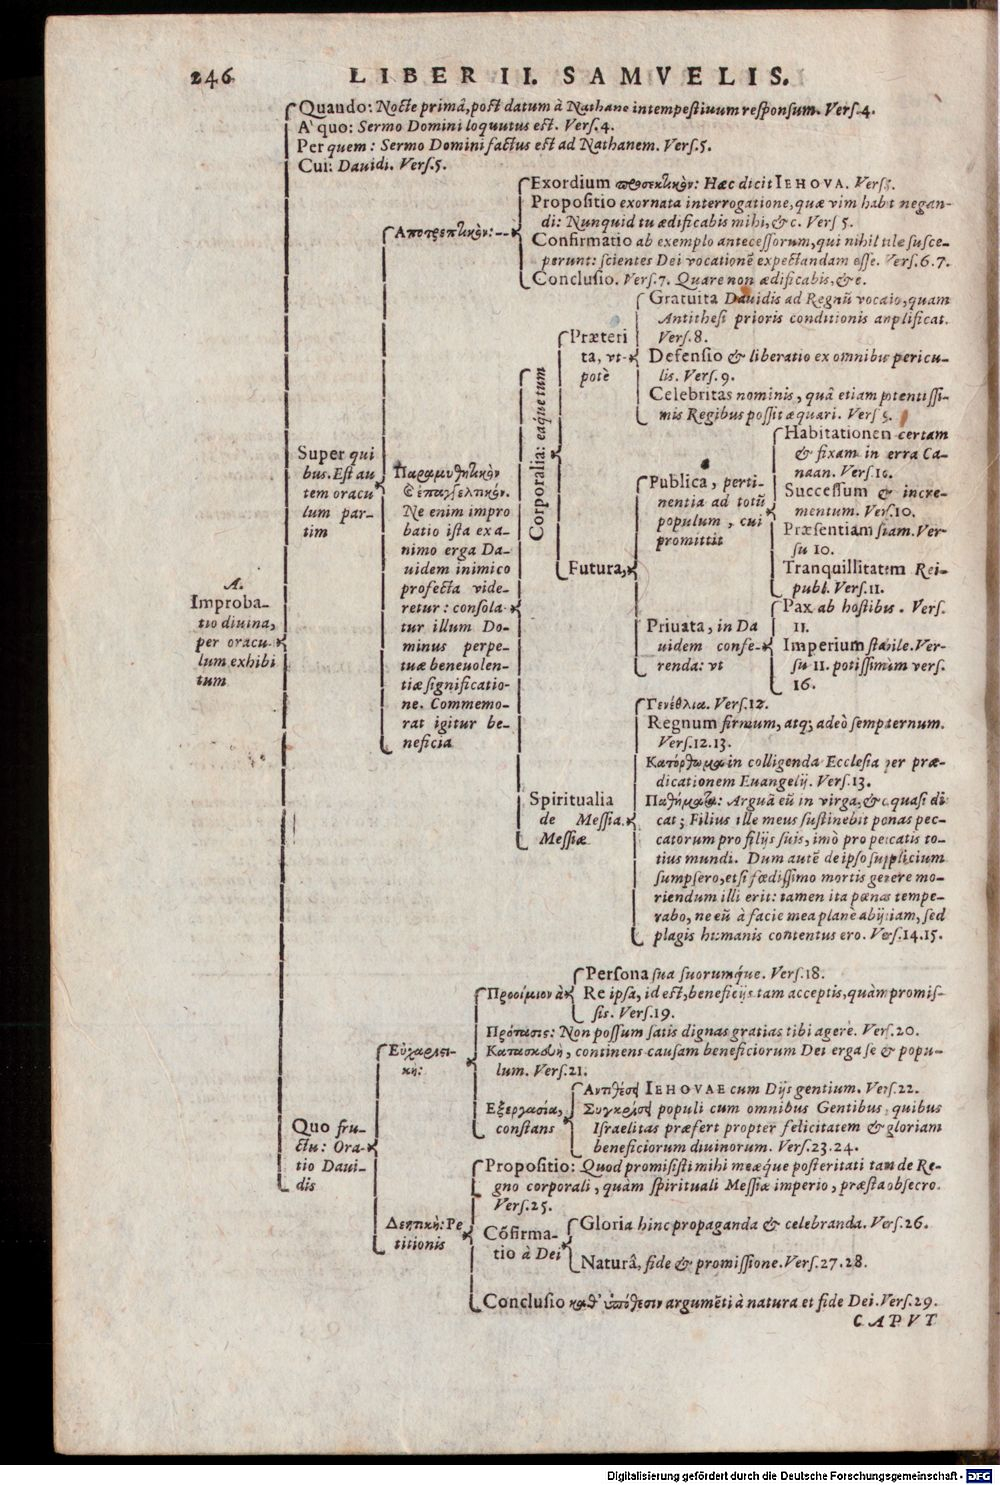 246 LIBER II. SAMVELIS.
A.
Improba-
tio diuina,
per oracu-
lum exhibi
tum
Quando: Nocte primâ, post datum à Nathane intempestiuum responsum. Vers.4.
A' quo: Sermo Domini loquutus est. Vers.4.
Per quem: Sermo Domini factus est ad Nathanem. Vers.5.
Cui: Dauidi. Vers.5.
Super qui
bus. Est au
tem oracu
lum par-
tim
Αποτρεπτικὸν:
Exordium προσεκτικὸν: Hæc dicit IEHOVA. Vers.5.
Propositio exornata interrogatione, quæ vim habet negan-
di: Nunquid tu ædificabis mihi, &c. Vers 5.
Confirmatio ab exemplo antecessorum, qui nihil tale susce-
perunt: scientes Dei vocationē expectandam esse. Vers.6.7.
Conclusio. Vers.7. Quare non ædificabis, &c.
Παραμυθητικὸν
& ἐπαγγελτικόν.
Ne enim impro
batio ista exa-
nimo erga Da-
uidem inimico
profecta vide-
retur: consola-
tur illum Do-
minus perpe-
tuæ beneuolen-
tiæ significatio-
ne. Commemo-
rat igitur be-
neficia
Corporalia: eáque tum
Præteri
ta, vt-
potè
Gratuita Dauidis ad Regnū vocatio, quam
Antithesi prioris conditionis amplificat.
Vers.8.
Defensio & liberatio ex omnibus pericu-
lis. Vers.9.
Celebritas nominis, quâ etiam potentissi-
mis Regibus possit æquari. Vers 9.
Futura,
Publica, perti-
nentia ad totū
populum, cui
promittit
Habitationem certam
& fixam in terra Ca-
naan. Vers.10.
Successum & incre-
mentum. Vers.10.
Præsentiam suam. Ver-
su 10.
Tranquillitatem Rei-
publ. Vers.11.
Priuata, in Da
uidem confe-
renda: vt
Pax ab hostibus. Vers.
11.
Imperium stabile. Ver-
su 11. potissimùm vers.
16.
Spiritualia
de Messia.
Messiæ
Γενέθλια. Vers.12.
Regnum firmum, atq; adeò sempternum.
Vers.12.13.
Κατόρθωμα in colligenda Ecclesia per præ-
dicationem Euangelij. Vers.13.
Παθήματα: Arguā eū in virga, &c. quasi di-
cat; Filius ille meus sustinebit pœnas pec-
catorum pro filijs suis, imò pro peccatis to-
tius mundi. Dum autē de ipso supplicium
sumpsero, etsi fœdissimo mortis genere mo-
riendum illi erit: tamen ita pœnas tempe-
rabo, ne eū à facie mea planè abijciam, sed
plagis humanis contentus ero. Vers.14.15.
Quo fru-
ctu: Ora-
tio Daui-
dis
Εὐχαριστι-
κή:
Προοίμιον à
Persona sua suorumque. Vers.18.
Re ipsa, id est, beneficijs tam acceptis, quàm promis-
sis. Vers.19.
Πρότασις: Non possum satis dignas gratias tibi agere. Vers.20.
Κατασκευὴ, continens causam beneficiorum Dei erga se & popu-
lum. Vers.21.
Εξεργασία,
constans
Αντιθέσει IEHOVAE cum Dijs gentium. Vers.22.
Συγκρίσει populi cum omnibus Gentibus, quibus
Israelitas præfert propter felicitatem & gloriam
beneficiorum diuinorum. Vers.23.24.
Δεητική: Pe
titionis
Propositio: Quod promisisti mihi meæque posteritati tam de Re-
gno corporali, quàm spirituali Messiæ imperio, præsta obsecro.
Vers.25.
Cōfirma-
tio à Dei
Gloria hinc propaganda & celebranda. Vers.26.
Naturâ, fide & promissione. Vers.27.28.
Conclusio καθ' ὑπόθεσιν argumēti à natura et fide Dei. Vers.29.
CAPVT
Digitalisierung gefördert durch die Deutsche Forschungsgemeinschaft - DFG